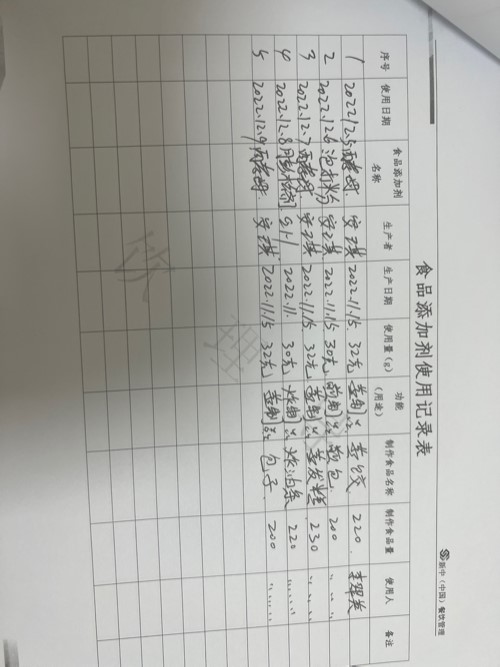 新中（中国）餐饮管理
食品添加剂使用记录表
序号 使用日期 食品添加剂名称 生产者 生产日期 使用量（g） 功能（用途） 制作食品名称 制作食品量 使用人 备注
1 2022.12.5 安琪 2022.11.15. 32克 蒸制 蒸饺 220.
2 2022.12.6 泡打粉 安琪 2022.11.15 30克. 煎制 煎包. 200 〃 〃 〃
3 2022.12.7 安琪 2022.11.15 32克. 蒸制 蒸发糕 230 〃 〃 〃
4 2022.12.8 2022.11. 30克 炸制 炸油条 220
5 2022.12.9 安琪. 2022.11.15 32克 蒸制 包子. 200